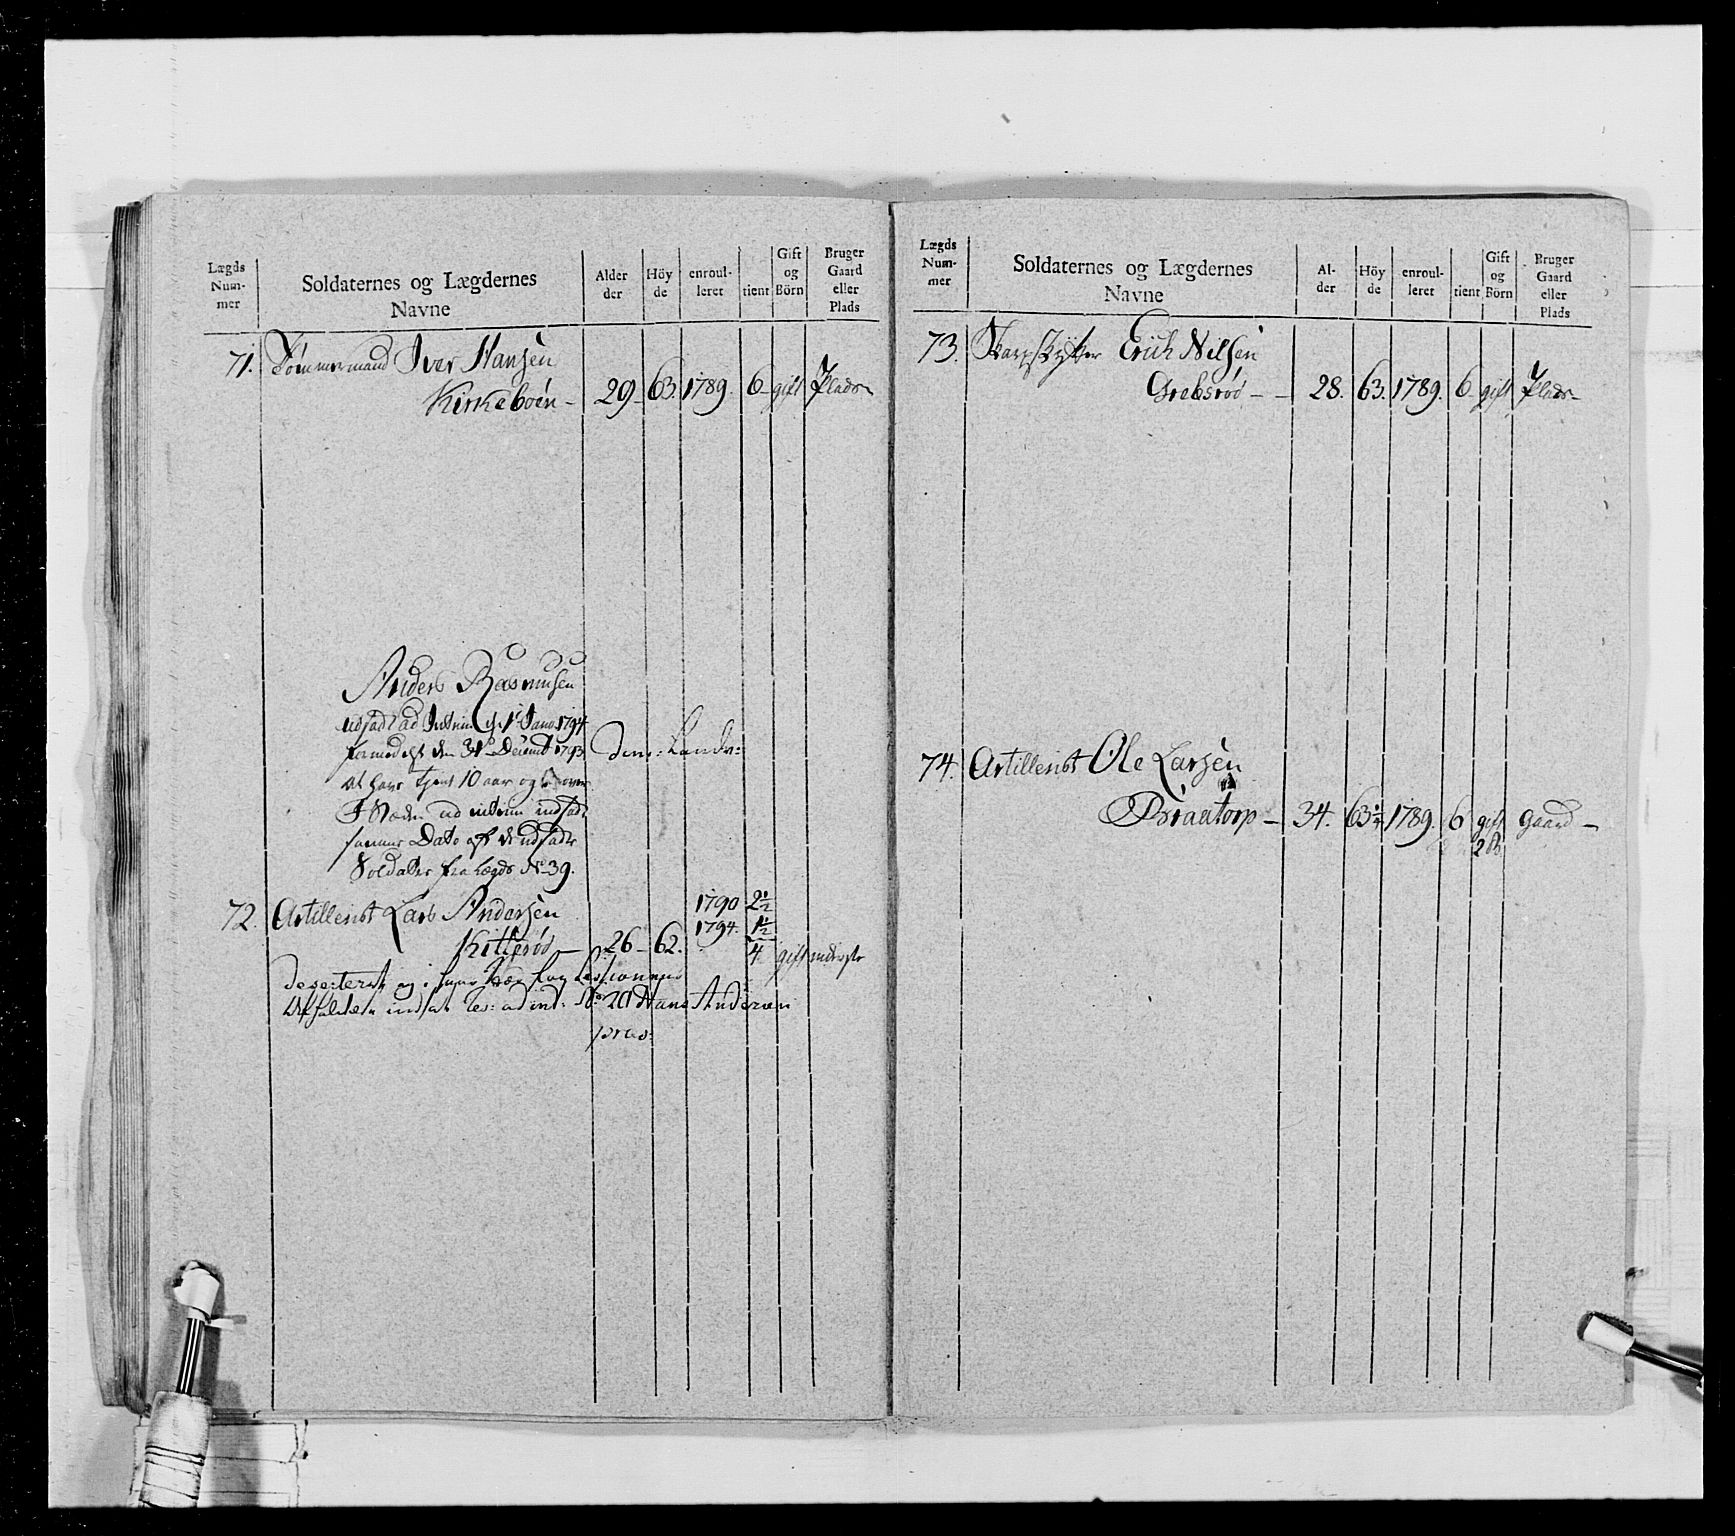 Lægds Num- mer
Soldaternes og Lægdernes Navne
Alder der
Höy de
enroul- leret
tient
Gift og Börn
Bruger Gaard eller Plads
71. Tømmermand Iver Hansen
Kirkeboen - 29 - 63. 1789. 6 - gift Plads -
Anders Rasmusen
udsadt ad Interim 1794
den 31te Decemb 1793
at have tjent 10 aar og
ad interim indsadt
samme Dato af de udsadte
Soldater fra Lægds No 39.
72. Artillerist Lars Andersen
1790 2½
1794. 1½
Kitterød - 26 - 62. 4. gift inderste
Deserteret og i hans
indsat Res: ad int: Hans Andersen
pras:
Lægds Num- mer
Soldaternes og Lægdernes Navne
Al- der
Höy de
enroul- leret
tient
Gift og Börn
Bruger Gaard eller Plads
73. Skarpskytter Erich Nilsen
Grebsrød - - 28. 63. 1789. 6 - gift Plads -
74. Artillerist Ole Larsen
Braatorp - 34. 63½ 1789. 6 gift Gaard -
2 B